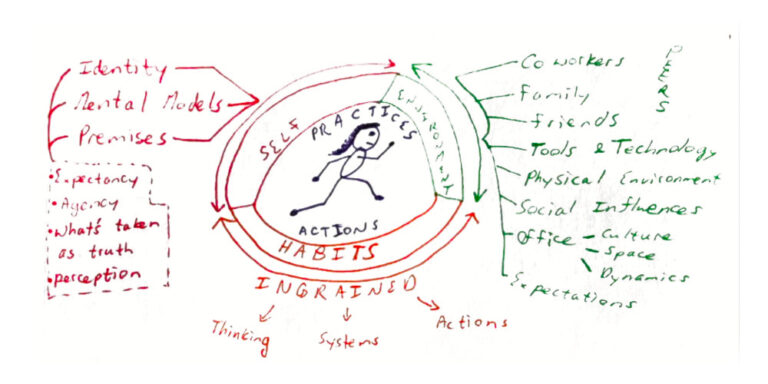 Identity
Mental Models
Premises
• Expectancy
• Agency
• What's taken
as truth
• perception
SELF
PRACTICES
ENVIRONMENT
ACTIONS
HABITS
INGRAINED
Thinking
Systems
Actions
Coworkers
Family
friends
PEERS
Tools & Technology
Physical Environment
Social Influences
Office
Culture
Space
Dynamics
Expectations